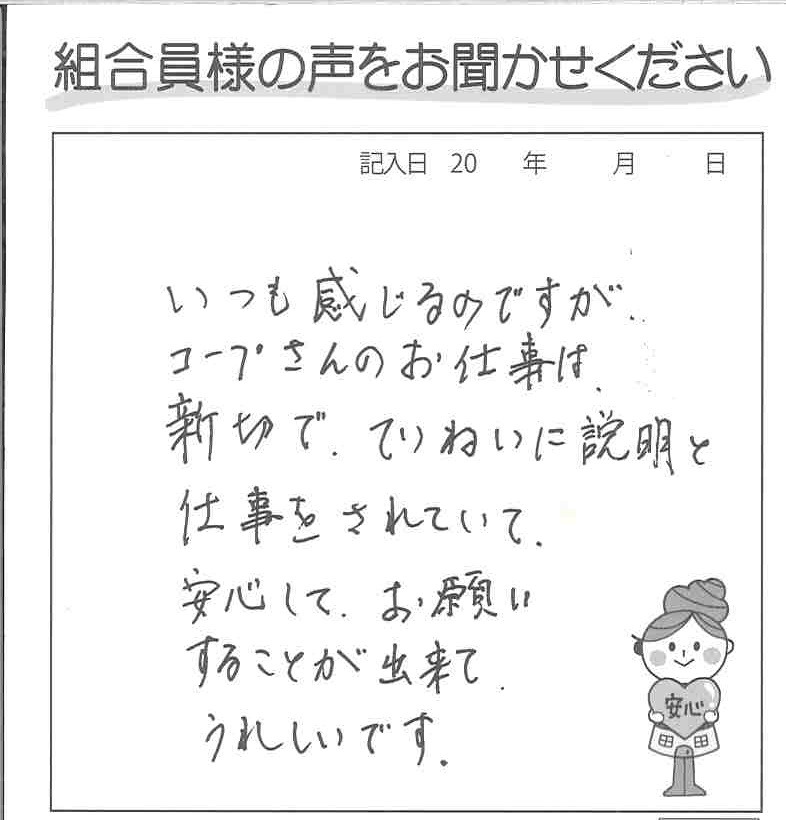 組合員様の声をお聞かせください
記入日 20 年 月 日
いつも感じるのですが、
コープさんのお仕事は、
新切で、ていねいに説明と
仕事をされていて、
安心して、お願い
することが出来て、
うれしいです。
安心